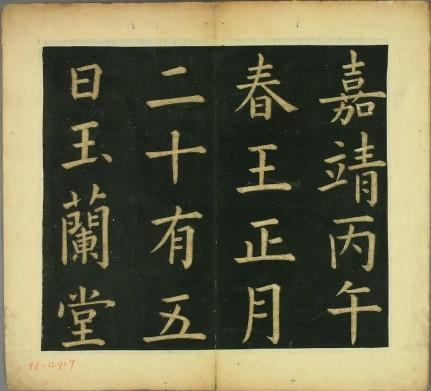 嘉靖丙午
春王正月
二十有五
日玉蘭堂